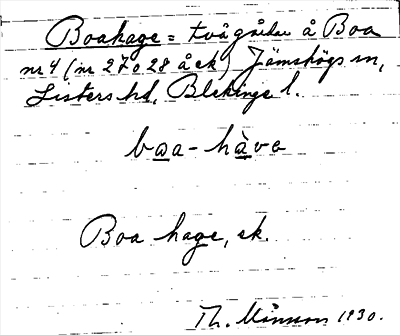 Boahage = två gårdar å Boa
nr 4 (nr 27 o 28 å ek) Jämshögs sn,
Listers hd, Blekinge l.
baa-hàva
Boa hage, ek.
Th. Månsson 1930.